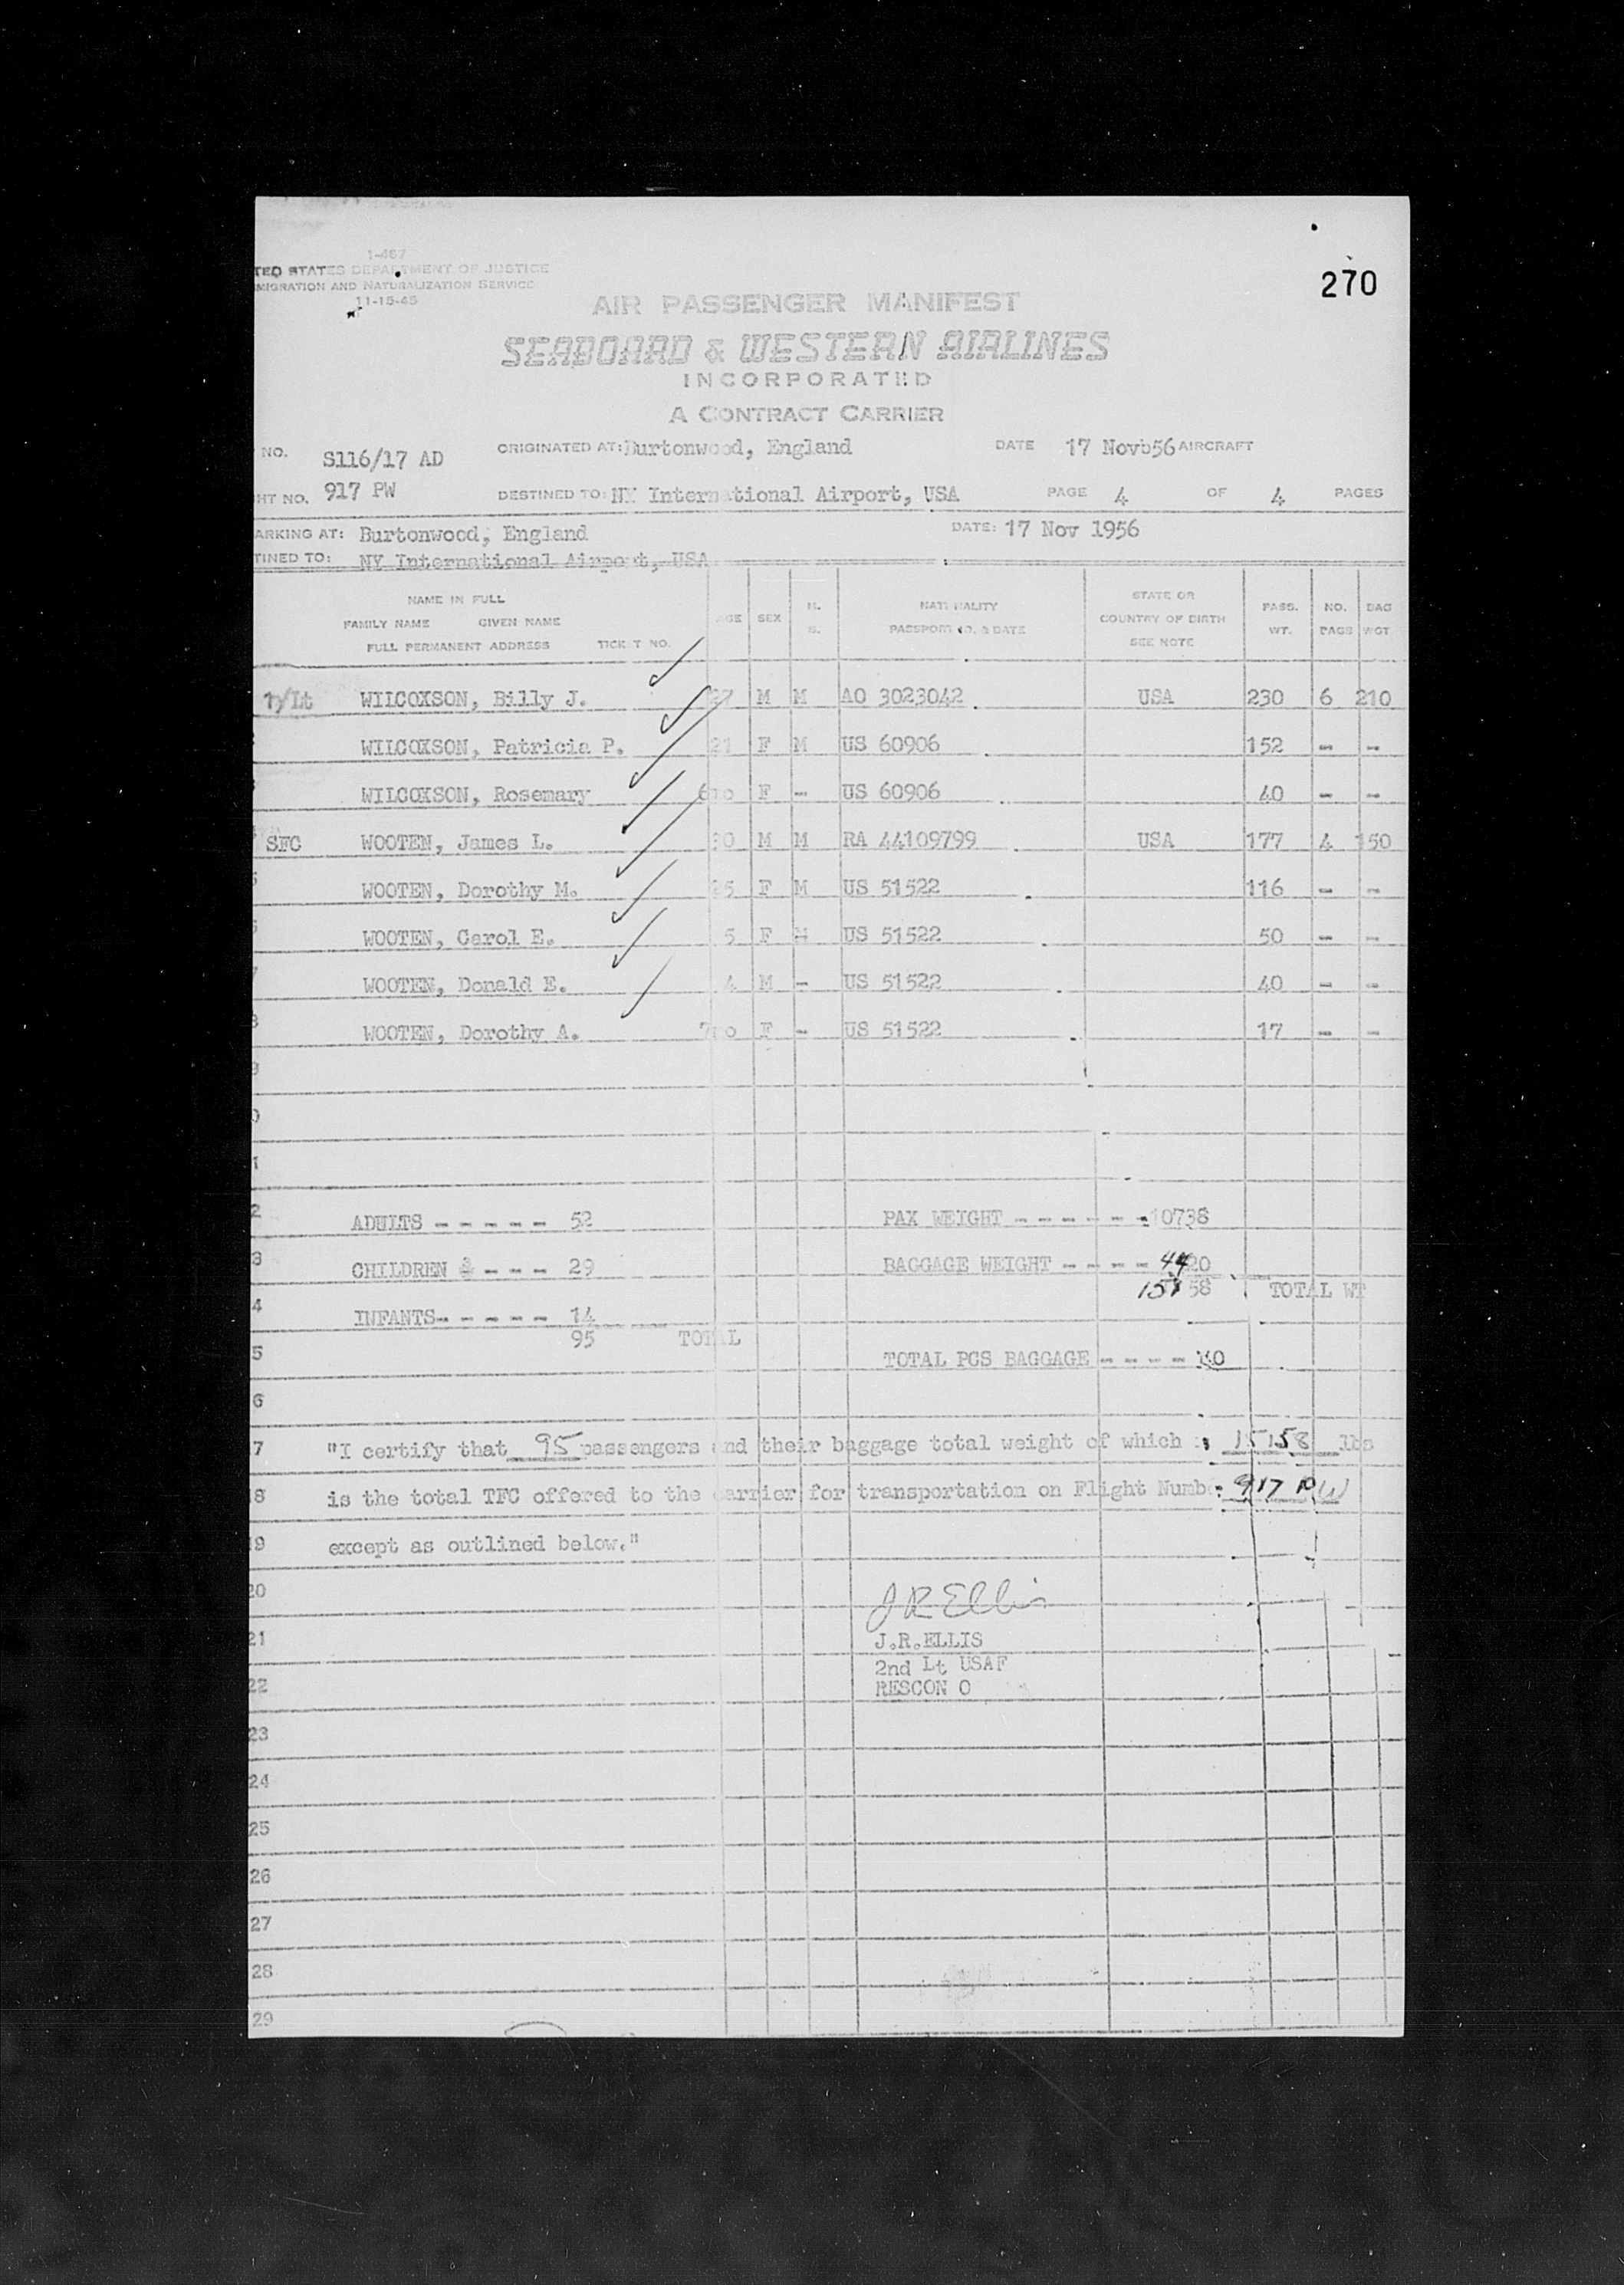 270
1-467
TED STATES DEPARTMENT OF JUSTICE
MIGRATION AND NATURALIZATION SERVICE
11-15-45
AIR PASSENGER MANIFEST
SEABOARD & WESTERN AIRLINES
INCORPORATED
A CONTRACT CARRIER
NO. S116/17 AD ORIGINATED AT: Burtonwood, England DATE 17 Nov 56 AIRCRAFT
HT NO. 917 PW DESTINED TO: NY International Airport, USA PAGE 4 OF 4 PAGES
ARKING AT: Burtonwood, England DATE: 17 Nov 1956
TINED TO: NY International Airport, USA
NAME IN FULL
FAMILY NAME GIVEN NAME
FULL PERMANENT ADDRESS TICKET NO.
AGE SEX M. S. NATIONALITY PASSPORT NO. & DATE STATE OR COUNTRY OF BIRTH SEE NOTE PASS. WT. NO. BAGS BAG WGT
1/Lt WILCOXSON, Billy J. 27 M M AO 3023042 USA 230 6 210
WILCOXSON, Patricia P. 21 F M US 60906 152 - -
WILCOXSON, Rosemary F - US 60906 40 - -
SFC WOOTEN, James L. 30 M M RA 44109799 USA 177 4 150
WOOTEN, Dorothy M. 25 F M US 51522 116 - -
WOOTEN, Carol E. 5 F - US 51522 50 - -
WOOTEN, Donald E. 4 M - US 51522 40 - -
WOOTEN, Dorothy A. F - US 51522 17 - -
9
0
1
2 ADULTS - - - - - 52 PAX WEIGHT - - - - - - 10738
3 CHILDREN - - - 29 BAGGAGE WEIGHT - - - - 4420
15158 TOTAL WT
4 INFANTS - - - - - 14
95 TOTAL
5 TOTAL PCS BAGGAGE - - - -
6
7 "I certify that 95 passengers and their baggage total weight of which is 15158 lbs
18 is the total TFC offered to the carrier for transportation on Flight Number 917 PW
19 except as outlined below."
20 J R Ellis
21 J.R.ELLIS
2nd Lt USAF
22 RESCON O
23
24
25
26
27
28
29